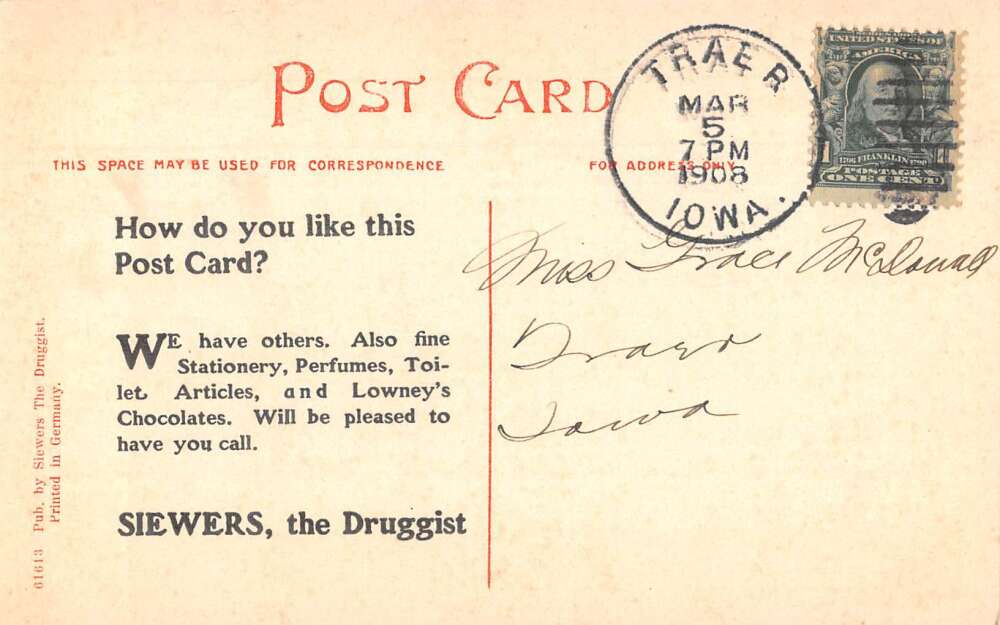 POST CARD
THIS SPACE MAY BE USED FOR CORRESPONDENCE
FOR ADDRESS ONLY
TRAER
MAR
5
7 PM
1908
IOWA.
UNITED STATES OF
AMERICA
1706 FRANKLIN 1790
POSTAGE
ONE CENT
How do you like this
Post Card?
WE have others. Also fine
Stationery, Perfumes, Toi-
let Articles, and Lowney's
Chocolates. Will be pleased to
have you call.
SIEWERS, the Druggist
Miss Grace McDowall
Traer
Iowa
61613 Pub. by Siewers The Druggist.
Printed in Germany.